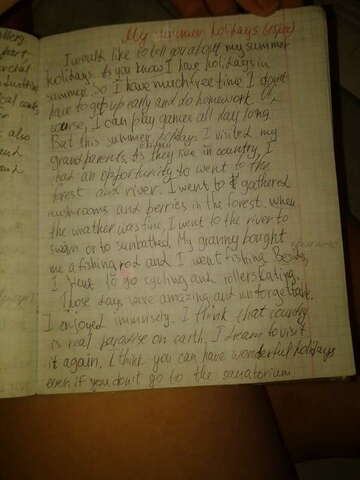 My summer holidays (essay)
I would like to tell you about my summer
holidays. As you know I have holidays in
summer. So I have much free time. I don't
have to get up early and do homework. Of
course, I can play games all day long.
But this summer holidays I visited my
grandparents. As they live in country, I
had an opportunity to went to the
forest and river. I went to gathered
mushrooms and berries in the forest. When
the weather was fine, I went to the river to
swam or to sunbathed. My granny bought
me a fishing rod and I went fishing. Besides,
I to go cycling and rollerskating.
Those days were amazing and unforgettable.
I enjoyed immensely. I think that country
is real paradise on earth. I dream to visit
it again. I think you can have wonderful holidays
even if you don't go to the sanatorium